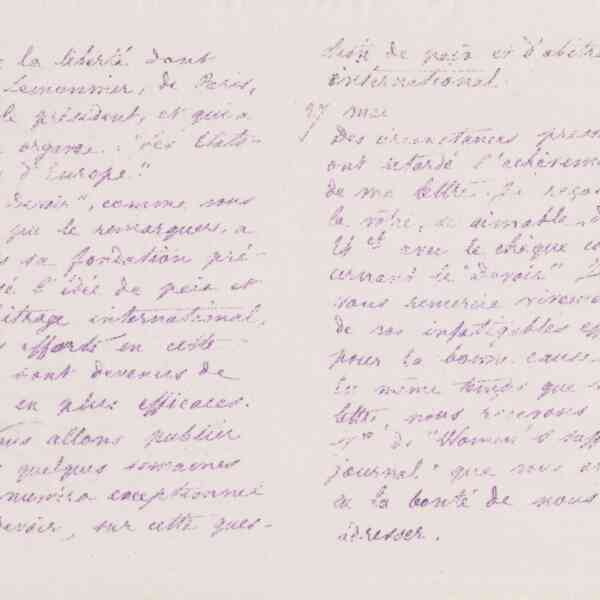 la liberté dont
Lemonnier, de Paris,
le président, et qui a
organe : "les Etats-
d'Europe."
Devoir", comme vous
que le remarquer, a
sa fondation pré-
l'idée de paix et
itrage international.
efforts en cette
sont devenus de
en plus efficaces.
allons publier
quelques semaines
numéro exceptionnel
evoir, sur cette ques-
tion de paix et d'abitra
international.
27 mai
Des circonstances press
ont retardé l'achèveme
de ma lettre. Je reçois
la vôtre, si aimable, d
14 ct avec le chèque co
cernant le "Devoir"
vous remercie viveme
de vos infatigables eff
pour la bonne cause.
En même temps que
lettre nous recevons
n° de "Women's suff
journal" que vous a
eu la bonté de nous
adresser.